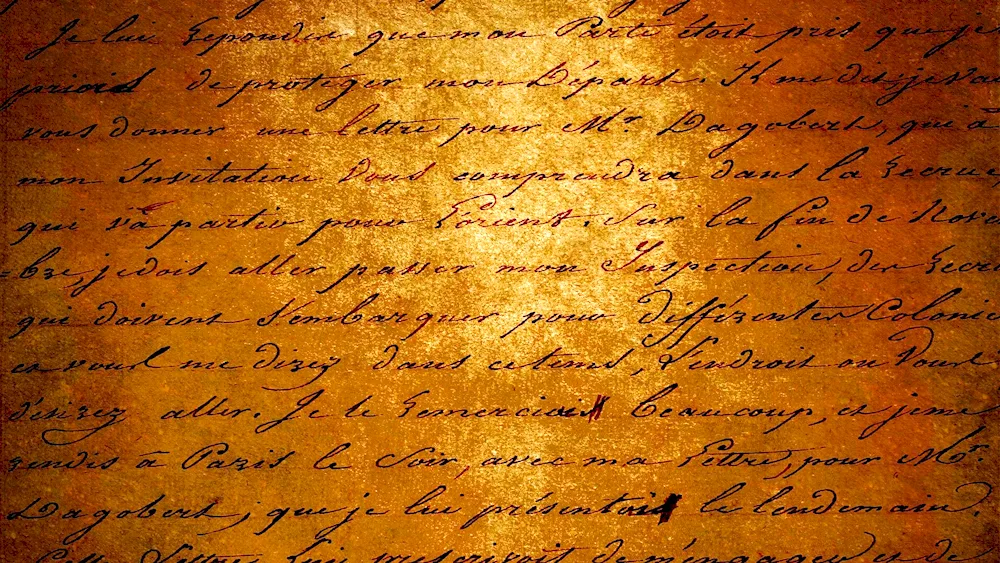 Je lui répondis que mon Parti étoit pris que je
priois de protéger mon Départ. Il me dit, je va
vous donner une lettre pour Mr. Dagobert, qui à
mon Invitation Vous comprendra dans la recrue
qui va partir pour l'orient. Sur la fin de Novem
=bre, je dois aller passer mon Inspection, des recrues
qui doivent s'embarquer pour différentes Colonies
et vous me direz dans ce tems, L'endroit ou Vous
désirez aller. Je le remerciais beaucoup, et je me
rendis à Paris le Soir, avec ma Lettre, pour Mr.
Dagobert, que je lui présentais le lendemain.
Cette Lettre lui prescrivoit de m'engager et de